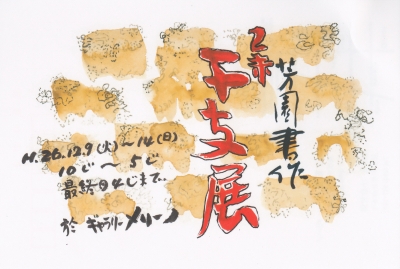 芳園書作
乙未
干支展
H.26.12.9(火)〜14(日)
10じ〜5じ
最終日4じまで
於 ギャラリーメリーノ